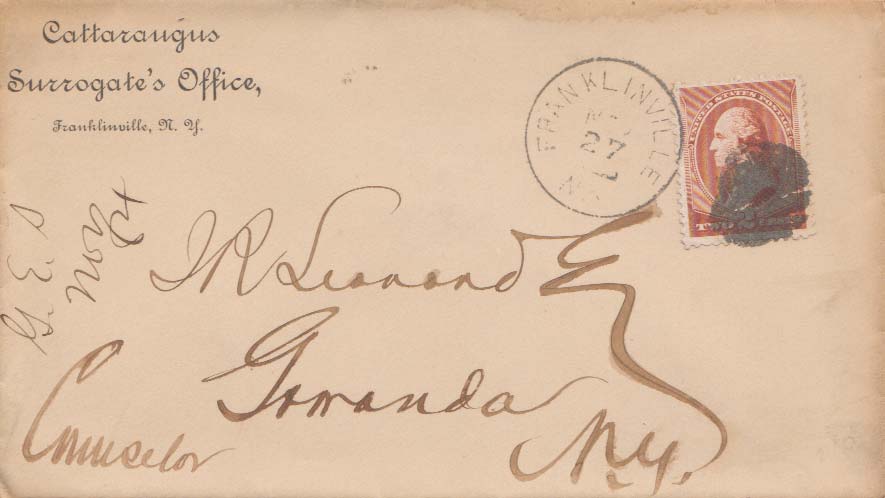 Cattaraugus
Surrogate's Office,
Franklinville, N. Y.
FRANKLINVILLE
27
N.Y.
UNITED STATES POSTAGE
TWO
G. E. S
J R Leonard Esq
Gowanda
N.Y.
Counselor